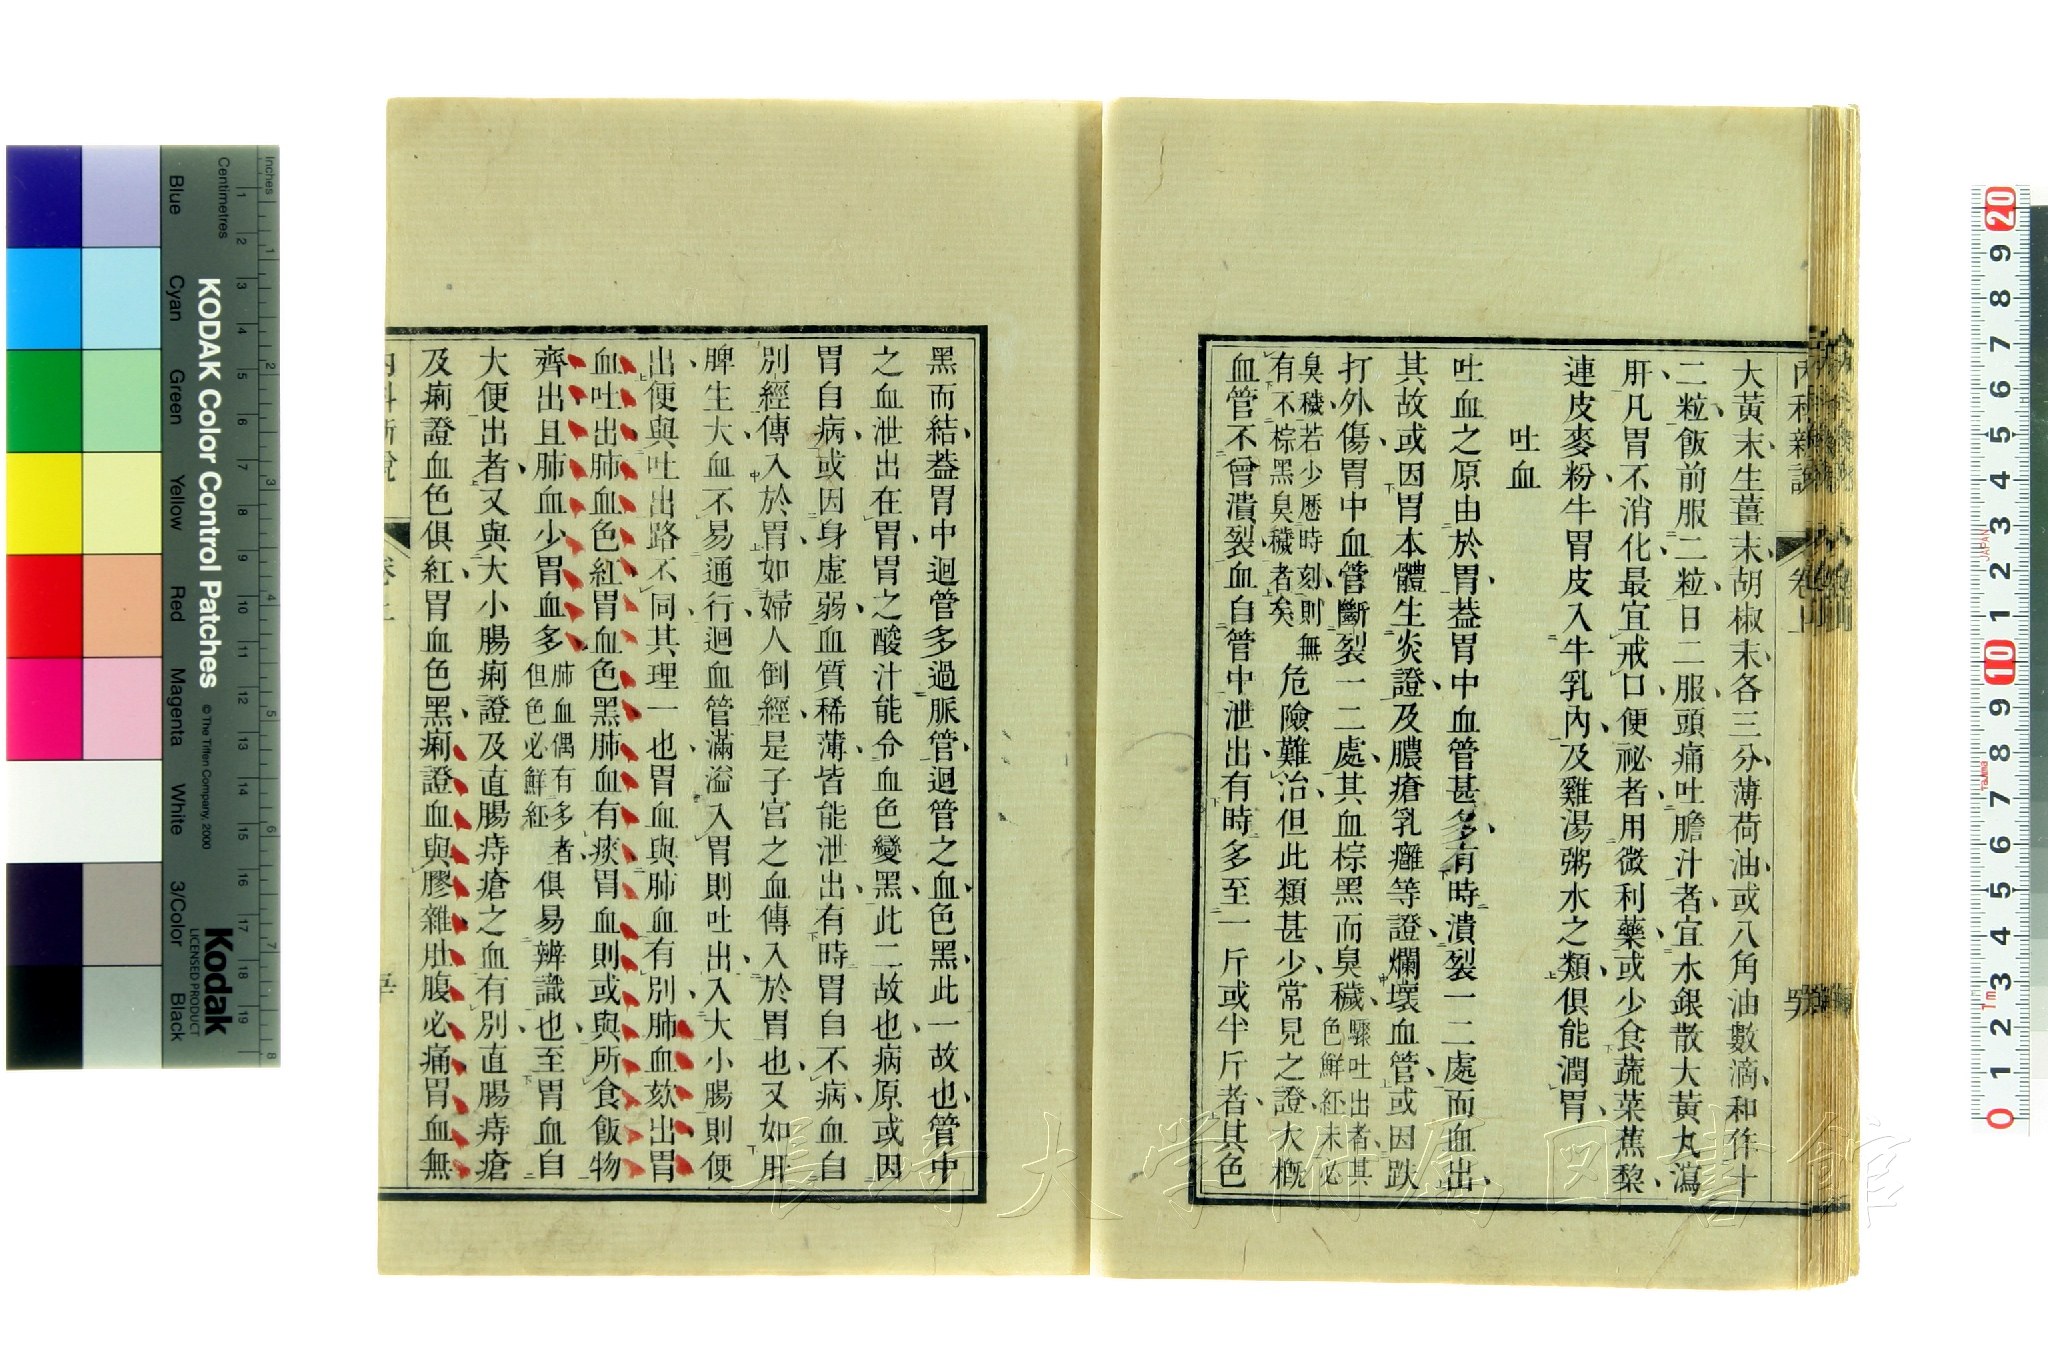 大黃末生薑末胡椒末各三分薄荷油或八角油數滴和作十
二粒飯前服二粒日二服頭痛吐膽汁者宜水銀散大黃丸瀉
肝凡胃不消化最宜戒口便祕者用微利藥或少食蔬菜蕉黎
連皮麥粉牛胃皮入牛乳內及雞湯粥水之類俱能潤胃
吐血
吐血之原由於胃葢胃中血管甚多有時潰裂一二處而血出
其故或因胃本體生炎證及膿瘡乳癰等證爛壞血管或因跌
打外傷胃中血管斷裂一二處其血棕黑而臭穢驟吐出者其色鮮紅未必
臭穢若少歷時刻則無有不棕黑臭穢者矣危險難治但此類甚少常見之證大概
血管不曾潰裂血自管中泄出有時多至一斤或半斤者其色
內科新說
卷上
黑而結葢胃中迴管多過脈管迴管之血色黑此一故也管中
之血泄出在胃胃之酸汁能令血色變黑此二故也病原或因
胃自病或因身虛弱血質稀薄皆能泄出有時胃自不病血自
別經傳入於胃如婦人倒經是子宮之血傳入於胃也又如肝
脾生大血不易通行迴血管滿溢入胃則吐出入大小腸則便
出便與吐出路不同其理一也胃血與肺血有別肺血欬出胃
血吐出肺血色紅胃血色黑肺血有痰胃血則或與所食飯物
齊出且肺血少胃血多肺血偶有多者但色必鮮紅俱易辨識也至胃血自
大便出者又與大小腸痢證及直腸痔瘡之血有別直腸痔瘡
及痢證血色俱紅胃血色黑痢證血與膠雜肚腹必痛胃血無
Inches
Centimetres
KODAK Color Control Patches
© The Tiffen Company, 2000
Kodak
LICENSED PRODUCT
Blue
Cyan
Green
Yellow
Red
Magenta
White
3/Color
Black
長崎大学附属図書館